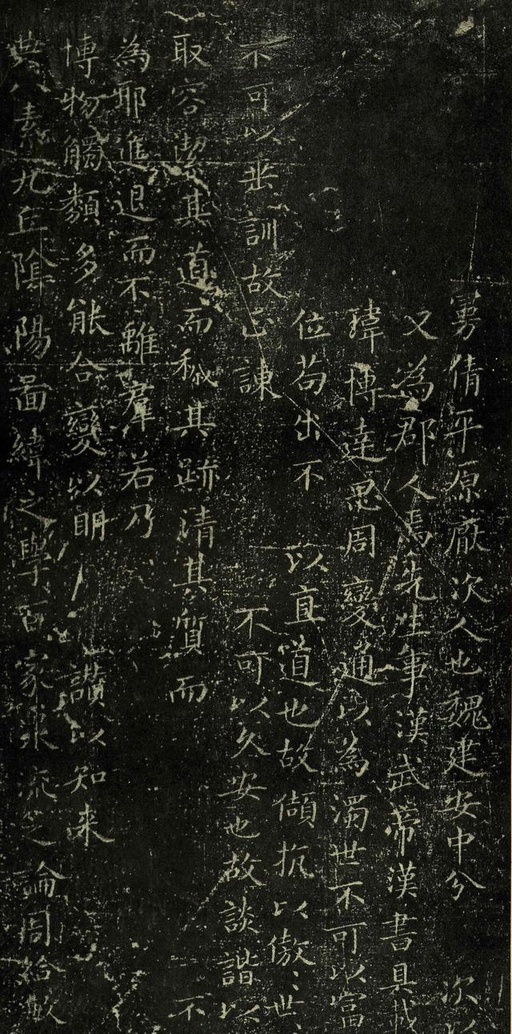 曼倩平原厭次人也魏建安中分 次
又為郡人焉先生事漢武帝漢書具載
瑋博達思周變通以為濁世不可以富
位苟出不 以直道也故傾抗以傲〻世〻
不可以垂訓故正諫 不可以久安也故談諧以
取容潔其道而穢其跡清其質而 不
為耶進退而不離羣若乃
博物觸類多能合變以明 讚以知来
典八素九丘陰陽啚緯之學百家衆流之論周給敏